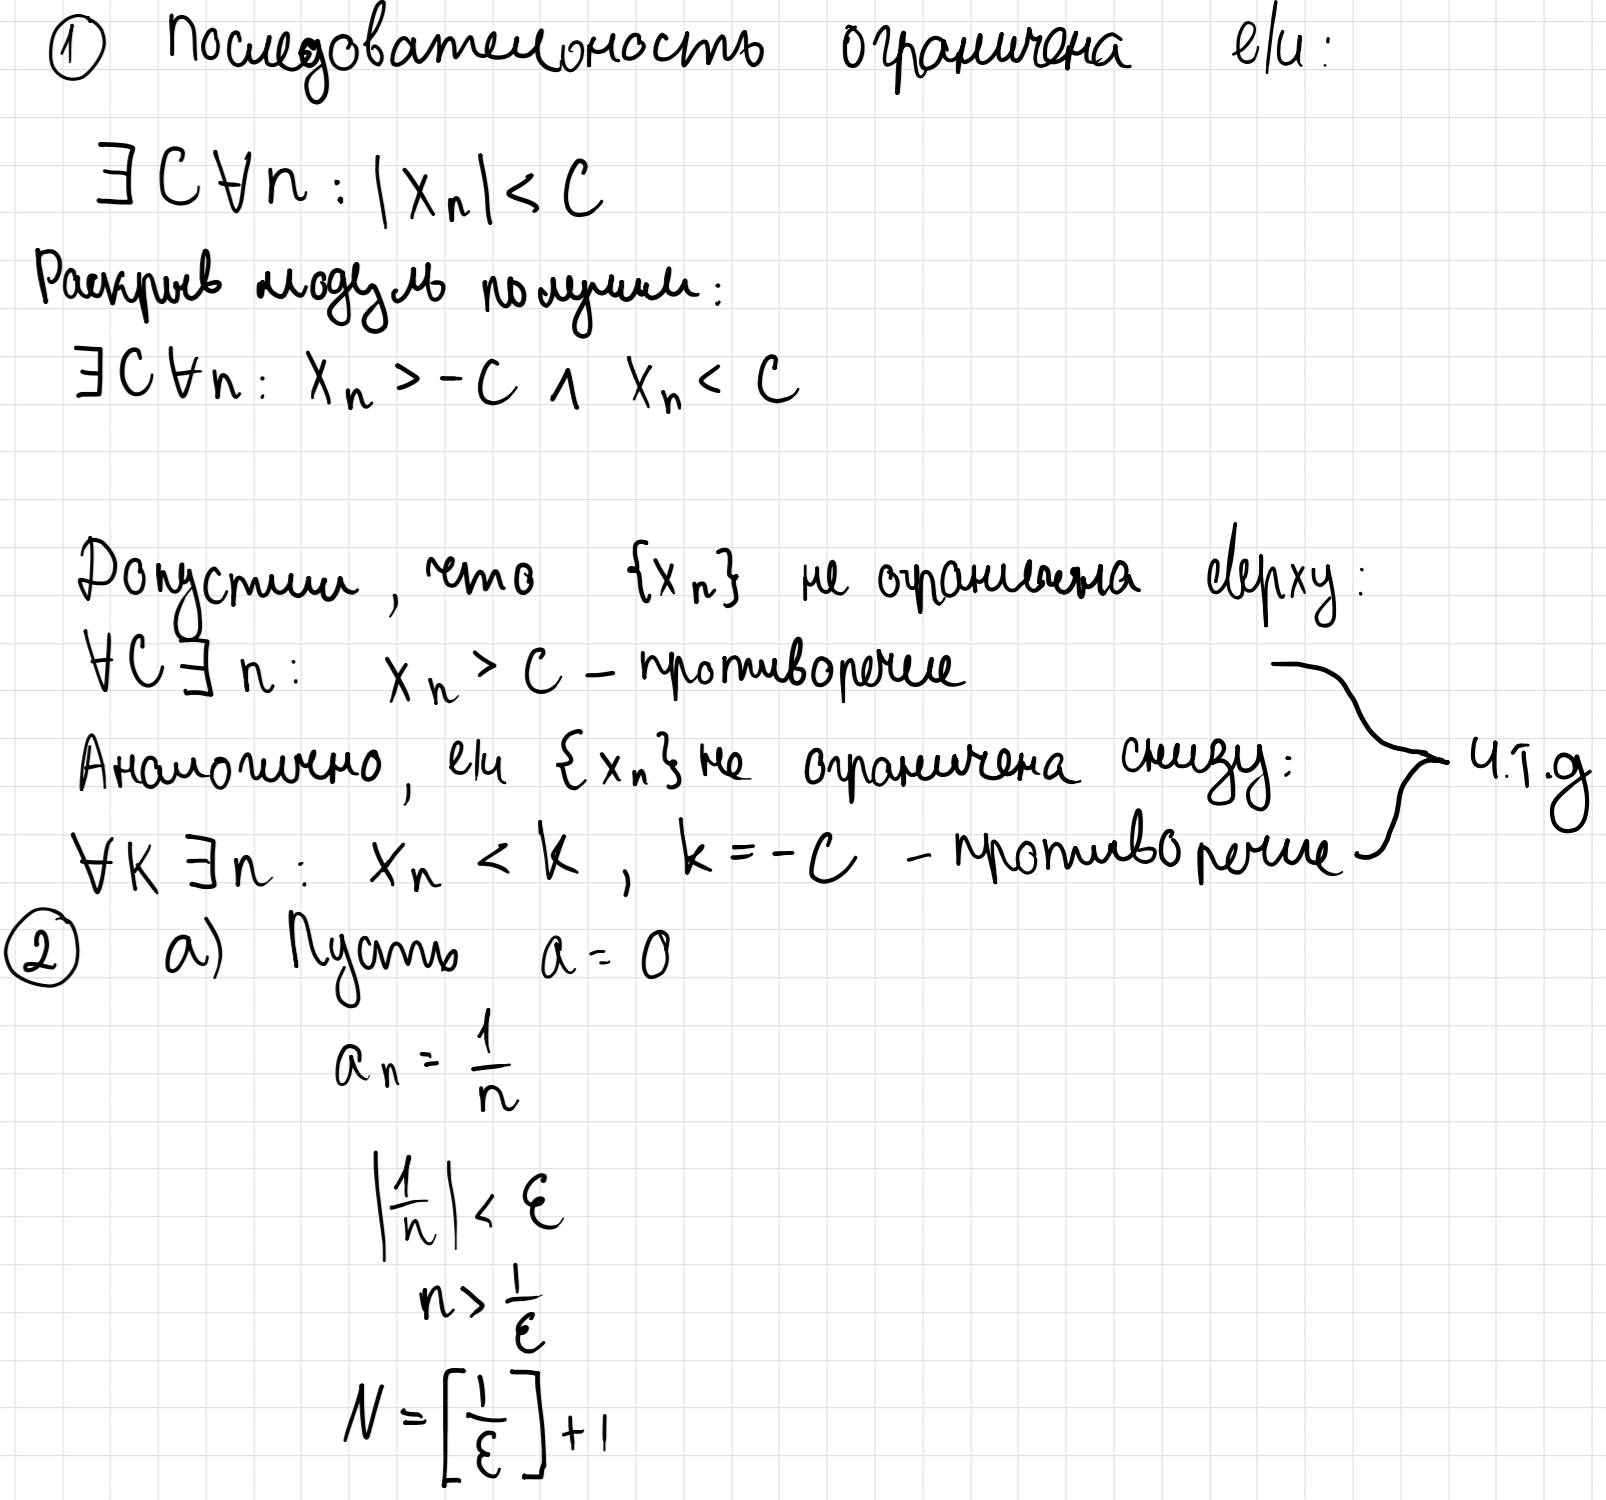 ① Последовательность ограничена е/и:
∃ C ∀ n : |xₙ| < C
Раскрыв модуль получим:
∃ C ∀ n : xₙ > -C ∧ xₙ < C
Допустим, что {xₙ} не ограничена сверху:
∀ C ∃ n : xₙ > C – противоречие
Аналогично, е/и {xₙ} не ограничена снизу:
ч.т.д
∀ K ∃ n : xₙ < K , k = -C – противоречие
② а) Пусть a = 0
aₙ = 1/n
|1/n| < ε
n > 1/ε
N = [1/ε] + 1